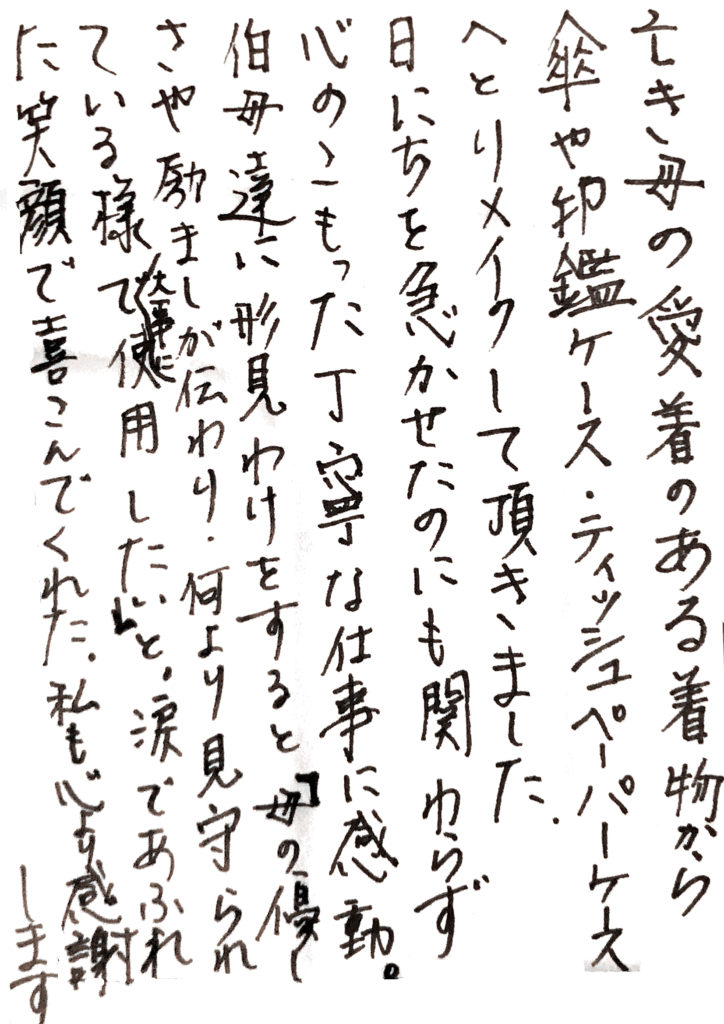 亡き母の愛着のある着物から
傘や印鑑ケース・ティッシュペーパーケース
へとリメイクして頂きました.
日にちを急がせたのにも関わらず
心のこもった丁寧な仕事に感動。
伯母達に形見わけをすると「母の優し
さや励ましが伝わり.何より見守られ
ている様で大事に使用したい」と。涙であふれ
た笑顔で喜こんでくれた.私も心より感謝
します